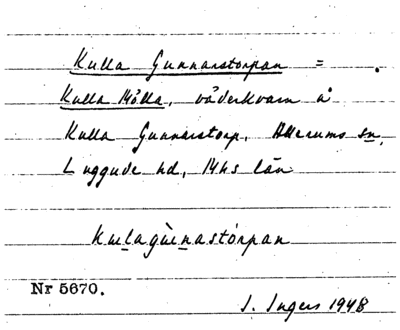 Kulla Gunnarstorpan = .
Kulla Mölla, väderkvarn å
Kulla Gunnarstorp, Allerums sn,
Luggude hd, Mhs län
Kullagùnnastórpan
Nr 5670.
I. Ingers 1948